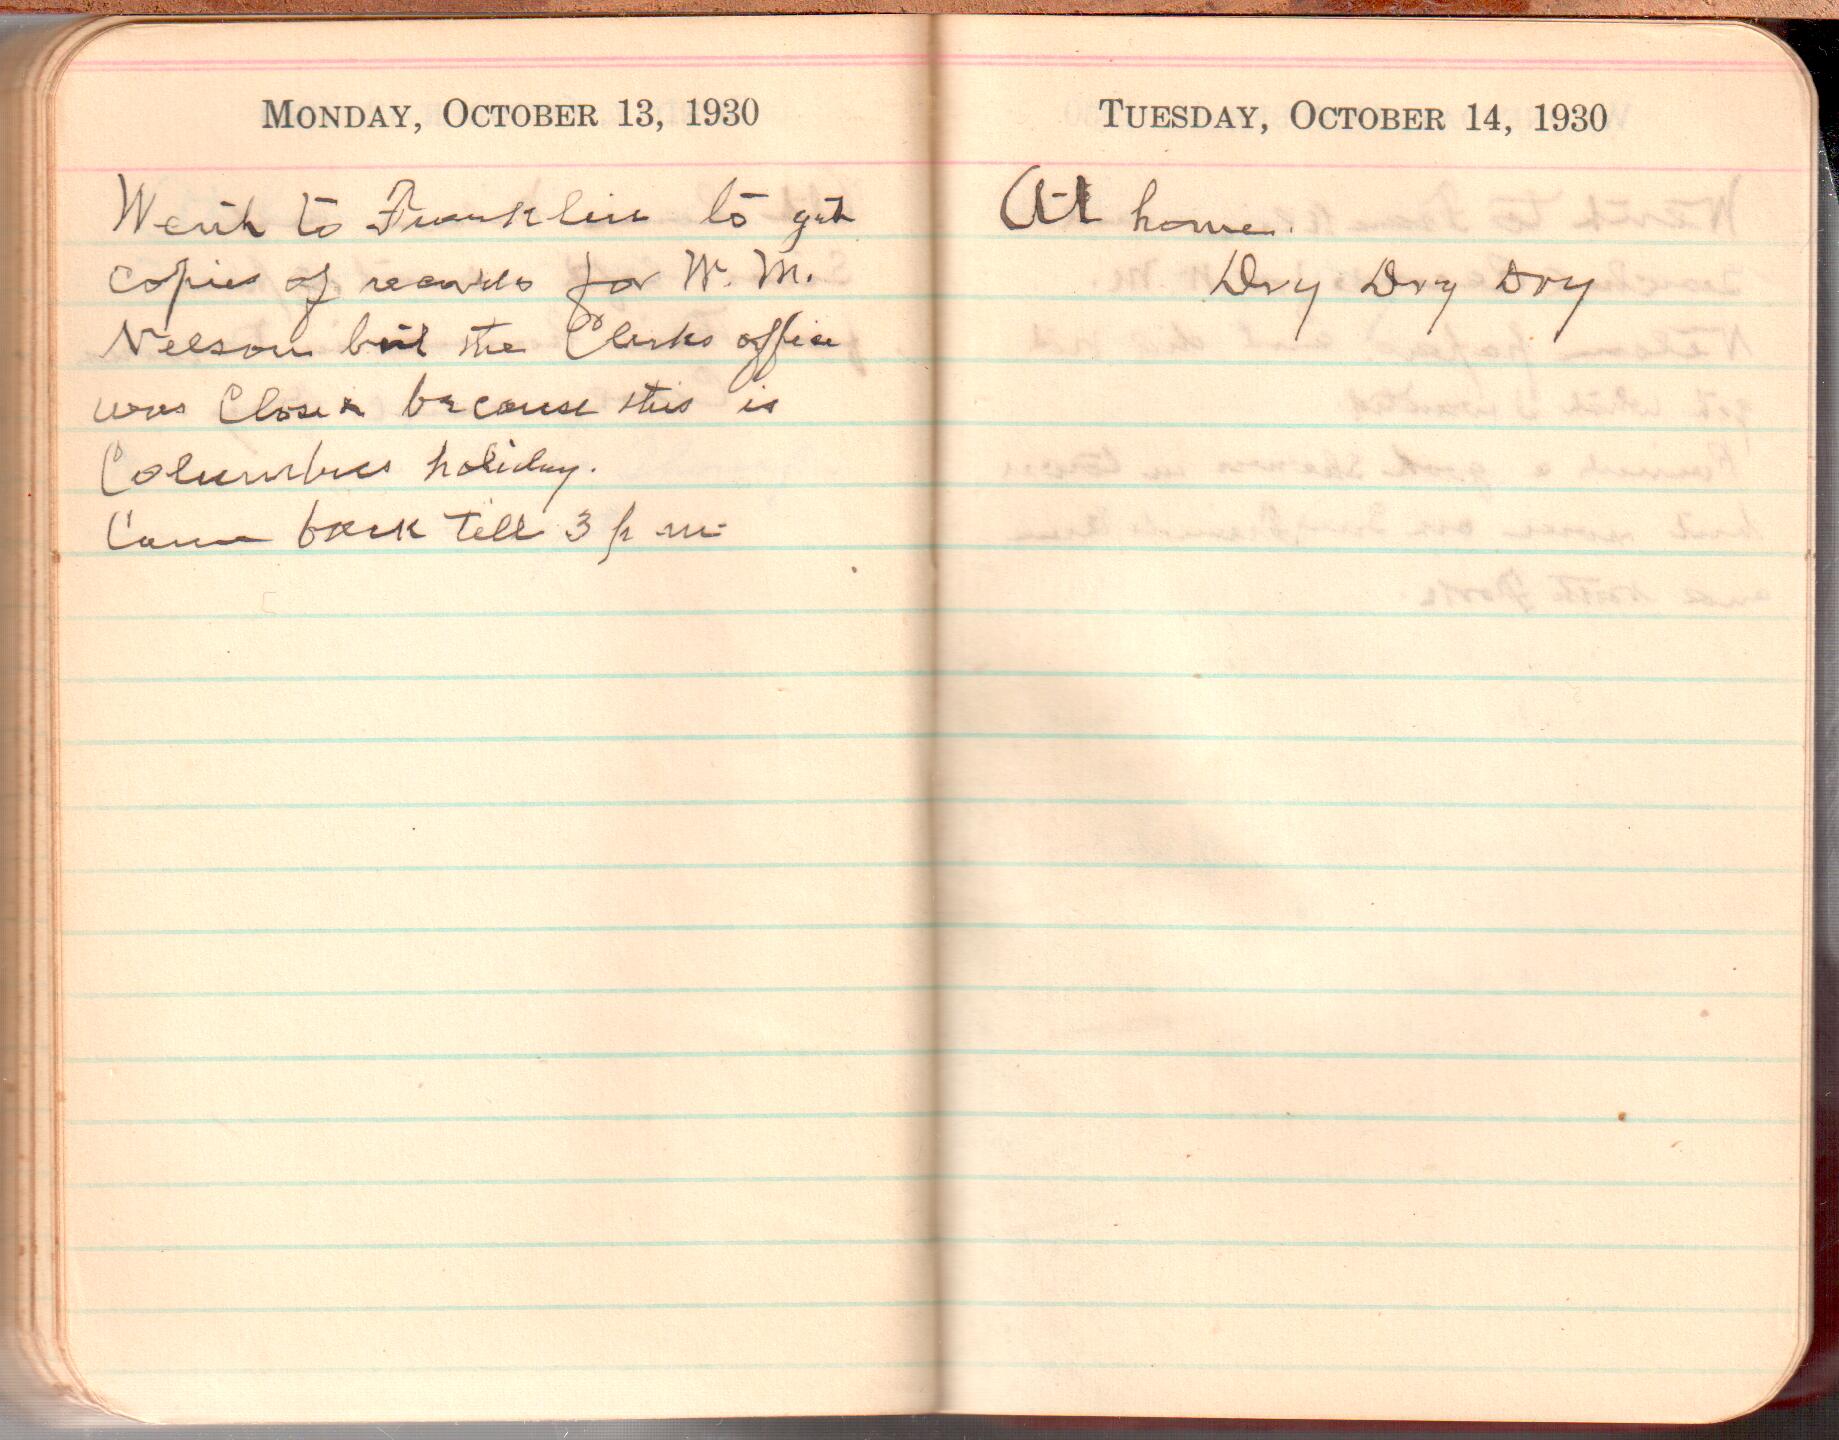 MONDAY, OCTOBER 13, 1930
Went to Franklin to get
copies of records for W. M.
Nelson but the Clerks office
was Closed because this is
Columbus holiday.
Came back till 3 p m
TUESDAY, OCTOBER 14, 1930
At home.
Dry Dry Dry